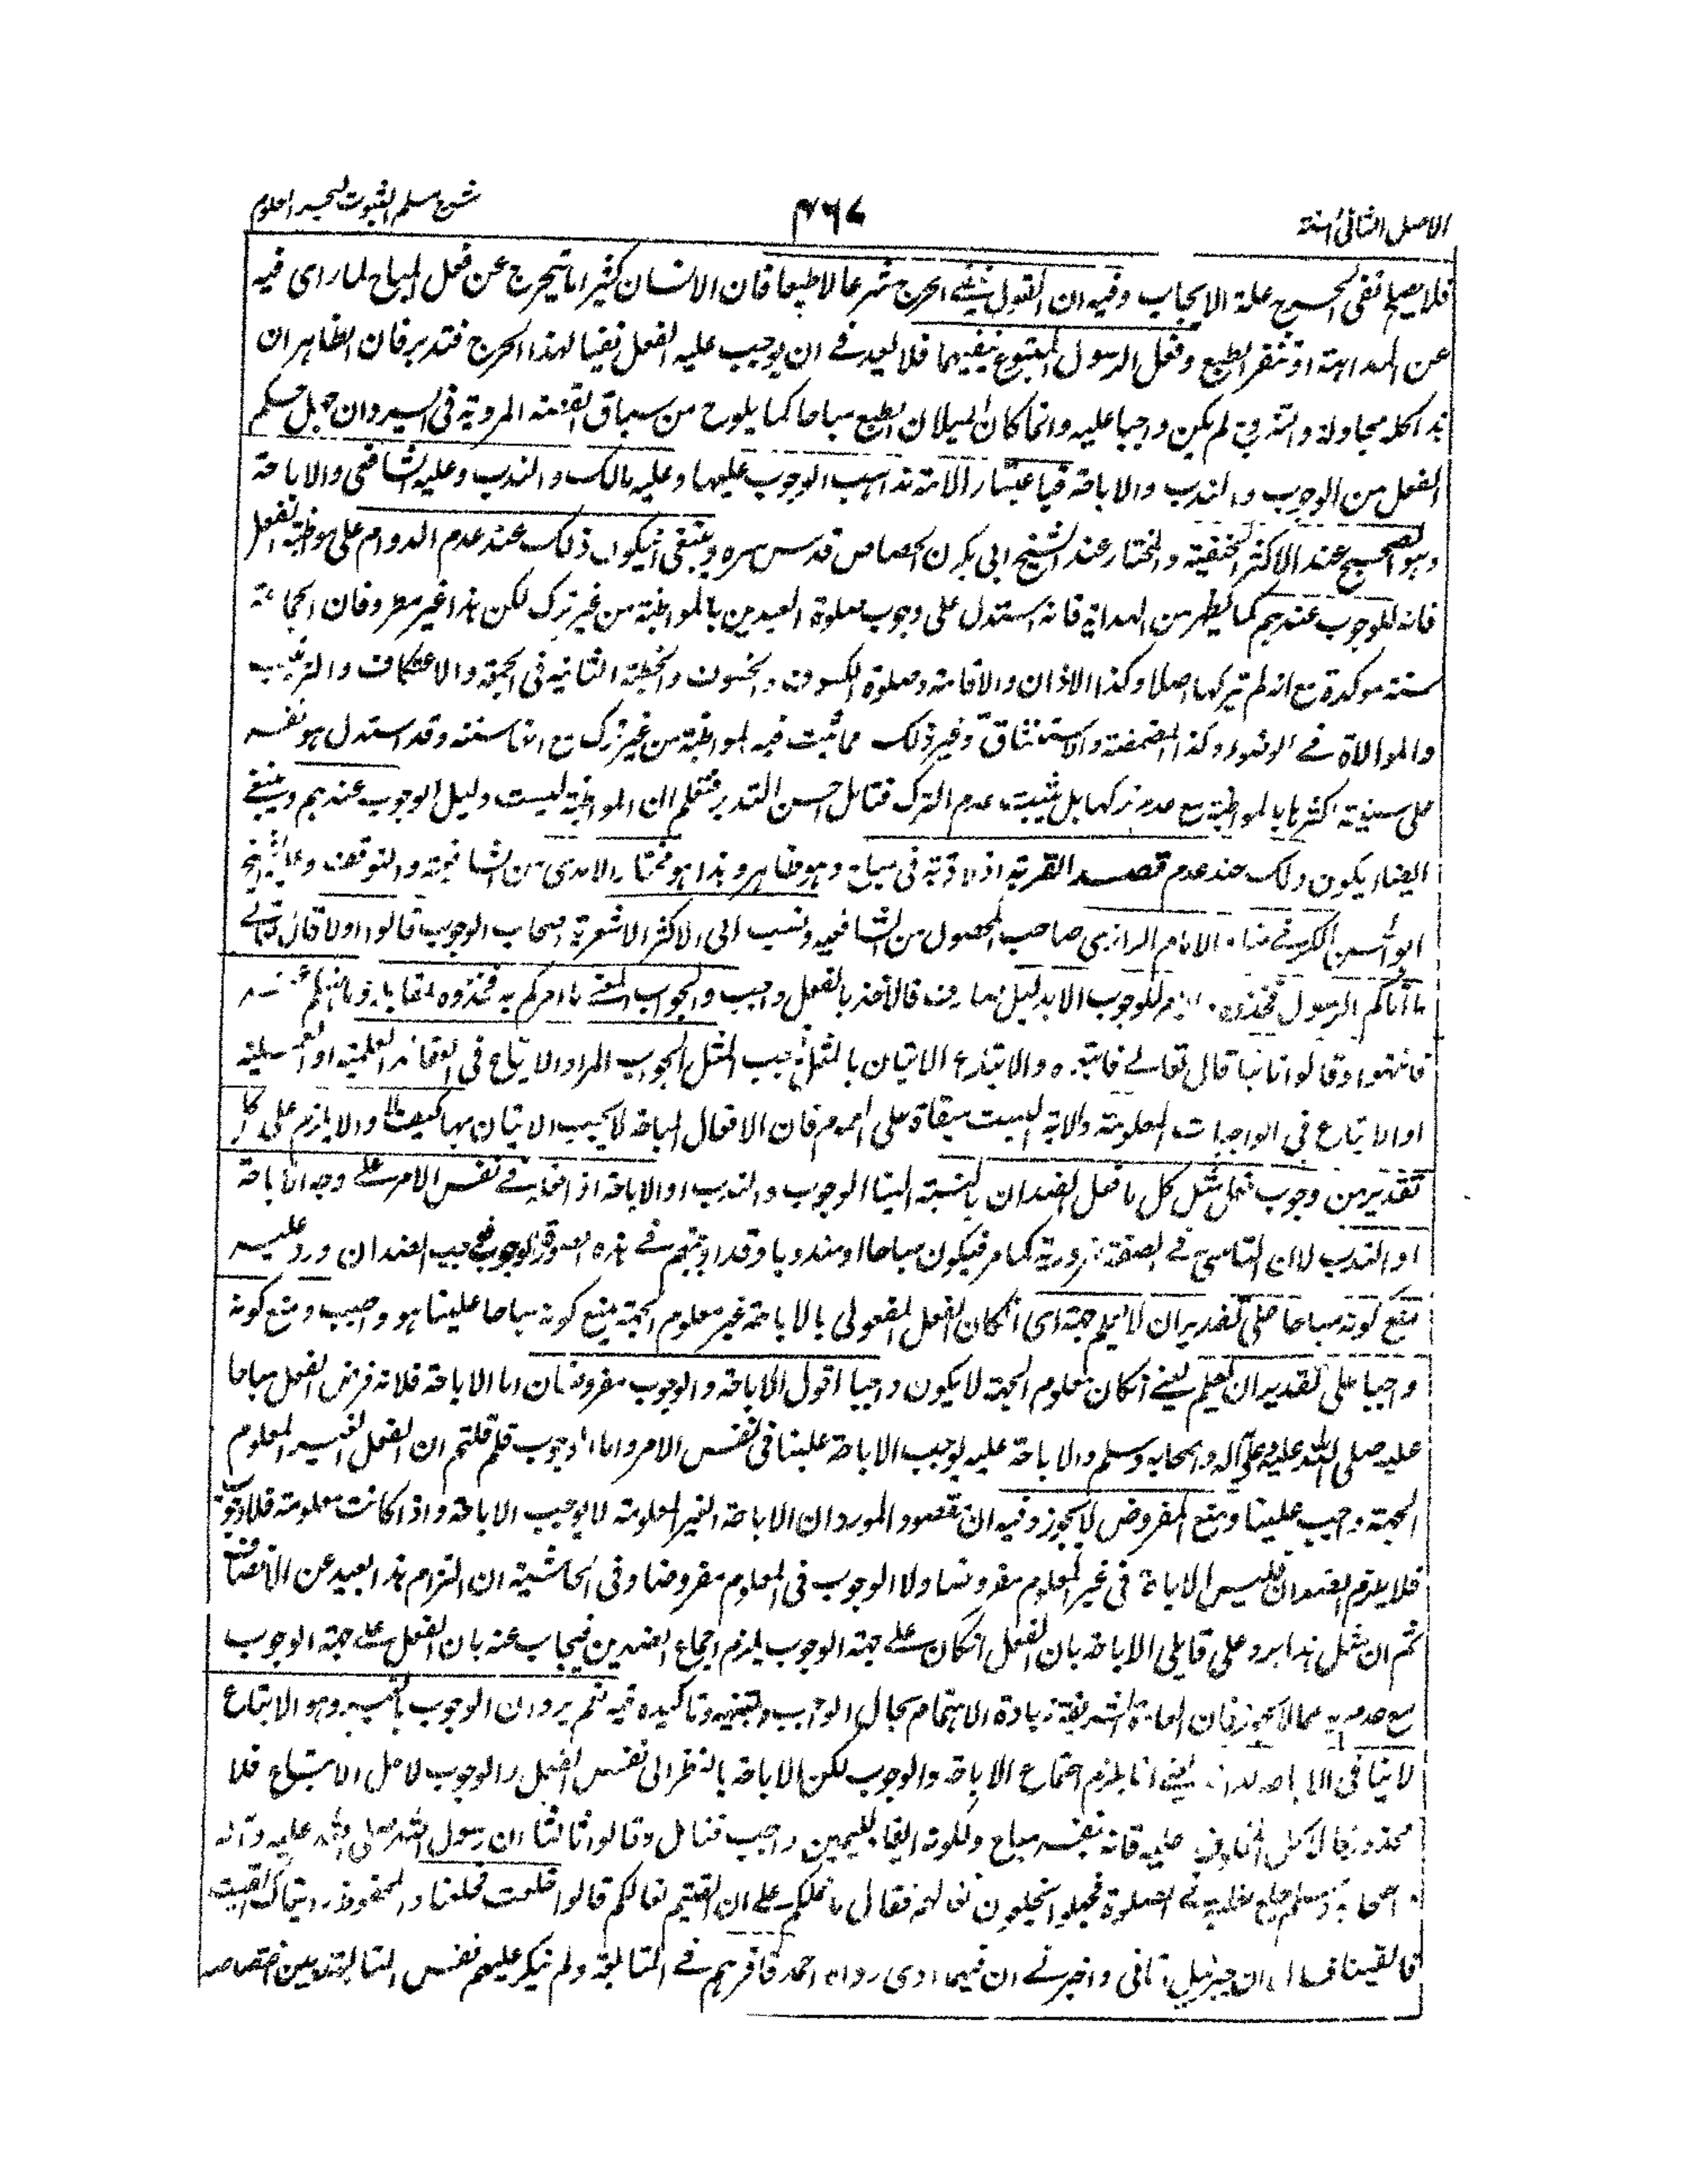 الاصل الثانی السنة
۴۶۷
شرح مسلم الثبوت لبحر العلوم
فلا يصلح نفی الحرج علة الايجاب وفيه ان القول بنفی الحرج شرعا لا طبعا فان الانسان كثيرا ما يتحرج عن فعل المباح لما رای فيه
عن المداهنة او تنفر الطبع وفعل الرسول المتبوع ينفيهما فلا بعد فی ان يوجب عليه الفعل نفيا لهذا الحرج فتدبر فان الظاهر ان
هذا كله مجادلة والتزوج لم يكن واجبا عليه وانما كان لميلان الطبع مباحا كما يلوح من سياق القصة المروية فی السير وان جهل حكم
الفعل من الوجوب والندب والاباحة فباعتبار الامة مذاهب الوجوب عليها وعليه مالك والندب وعليه الشافعی والاباحة
وهو الصحيح عند الاكثر الحنفية والمختار عند الشيخ ابی بكر ن الجصاص قدس سره وينبغی ان يكون ذلك عند عدم الدوام على مواظبة الفعل
فانه للوجوب عندهم كما يظهر من الهداية فانه استدل على وجوب صلوة العيدين بالمواظبة من غير ترك لكن هذا غير مطرد فان الجماعة
سنة موكدة مع انه لم يتركها اصلا وكذا الاذان والاقامة وصلوة الكسوف والخسوف والخطبة الثانية فی الجمعة والاعتكاف والترتيب
والموالاة فی الوضوء وكذا المضمضة والاستنشاق وغير ذلك مما ثبت فيه المواظبة من غير ترك مع انها سنة وقد استدل هو نفسه
على سنية اكثرها بالمواظبة مع عدم تركها بل يثبت عدم الترك فتامل احسن التدبر فتعلم ان المواظبة ليست دليل الوجوب عندهم وينبغی
ايضا ان يكون ذلك عند عدم قصد القربة اذ لا قربة فی مباح وهو ظاهر وهذا هو مختار الامدی من الشافعية والتوقف وعليه الشيخ
ابو الحسن الكرخی منا والامام الرازی صاحب المحصول من الشافعية ونسب الى الاكثر الاشعرية اصحاب الوجوب قالوا اولا قال تعالى
ما اتاكم الرسول فخذوه والامر للوجوب الا بدليل صارف فالاخذ بالفعل واجب والجواب المعنی ما امركم به فخذوه لمقابلة وما نهاكم عنه
فانتهوا وقالوا ثانيا قال تعالى فاتبعوه والاتباع الاتيان بالمثل فيجب المثل الجواب المراد الاتباع فی العقائد العلمية او العملية
او الاتباع فی الواجبات المعلومة والاية ليست مبقاة على العموم فان الافعال المباحة لا يجب الاتيان بها كيف والا يلزم على كل
تقدير من وجوب فعل مثل كل ما فعل الضدان بالنسبة الينا الوجوب والندب او الاباحة اذا فعله فی نفس الامر على وجه الاباحة
او الندب لان التاسی فی الصفة ضرورية كما مر فيكون مباحا او مندوبا وقد اوجبتم فی هذه الصورة الوجوب فيجب الضدان ورد عليه
منع كونه مباحا على تقدير ان لا يعلم جهته ای ان كان الفعل المفعول بالاباحة غير معلوم الجهة يمنع كونه مباحا علينا بل هو واجب ومنع كونه
واجبا على تقدير ان يعلم يعنی ان كان معلوم الجهة لا يكون واجبا اقول الاباحة والوجوب مفروضان اما الاباحة فلانه فرض الفعل مباحا
عليه صلى الله عليه وعلى آله واصحابه وسلم والاباحة عليه يوجب الاباحة علينا فی نفس الامر واما الوجوب فلم قلتم ان الفعل الغير المعلوم
الجهة واجب علينا ومنع المفروض لا يجوز وفيه ان مقصود المورد ان الاباحة الغير المعلومة لا يوجب الاباحة واذا كانت معلومة فلا وجوب
فلا يلزم الضدان فليس الاباحة فی غير المعلوم مفروضا ولا الوجوب فی المعلوم مفروضا وفی الحاشية ان التزام هذا بعيد عن الانصاف
ثم ان مثل هذا يرد على قابلی الاباحة بان الفعل ان كان على جهة الوجوب يلزم اجماع الضدين فيجاب عنه بان الفعل على جهة الوجوب
مع عدمه مما لا يجوز فان العادة الشريفة زيادة الاهتمام بحال الواجب وتبنيه وتاكيده فيه ثم يرد ان الوجوب بالغير وهو الاتباع
لا ينافی الاباحة لذاته يعنی انما يلزم اجتماع الاباحة والوجوب لكن الاباحة بالنظر الى نفس الفعل والوجوب لاجل الاتباع فلا
محذور فالاكل المحلوف عليه فانه نفسه مباح ولكونه ايفاء لليمين واجب فتامل وقالوا ثالثا ان رسول الله صلى الله عليه وآله
واصحابه وسلم خلع نعليه فی الصلوة فجعلوا يخلعون نعالهم فقال ما حملكم على ان القيتم نعالكم قالوا خلعت فخلعنا والمحفوظ رايناك القيت
فالقينا فقال ان جبرئيل اتانی واخبرنی ان فيهما اذی رواه احمد فاقرهم فی المتابعة ولم ينكر عليهم نفس المتابعة بين اختصاصه